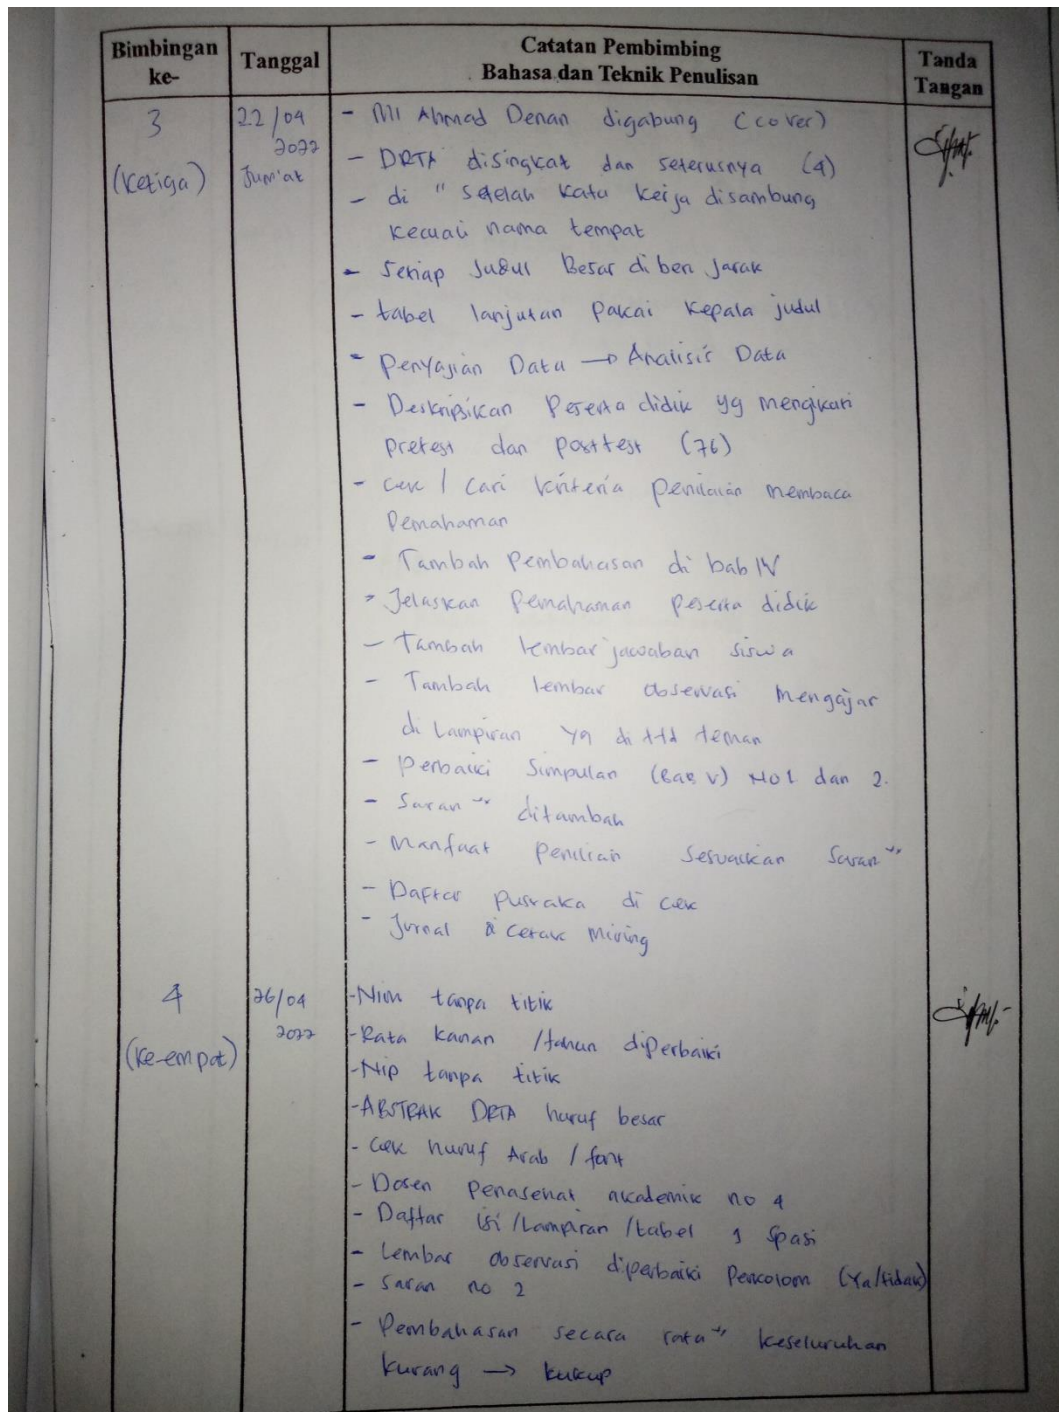 Bimbingan ke-
Tanggal
Catatan Pembimbing
Bahasa dan Teknik Penulisan
Tanda Tangan
3
(Ketiga)
22/04
2022
Jum'at
- MI Ahmad Denan digabung (cover)
- DRTA disingkat dan seterusnya (4)
- di " setelah kata kerja disambung
kecuali nama tempat
- Setiap Judul Besar diberi Jarak
- tabel lanjutan pakai kepala judul
- Penyajian Data → Analisis Data
- Deskripsikan Peserta didik yg mengikuti
pretest dan posttest (76)
- cek / cari kriteria penilaian membaca
Pemahaman
- Tambah Pembahasan di bab IV
- Jelaskan Pemahaman peserta didik
- Tambah lembar jawaban siswa
- Tambah lembar observasi mengajar
di Lampiran yg di ttd teman
- Perbaiki Simpulan (Bab V) No 1 dan 2.
- Saran " ditambah
- Manfaat Penelitian Sesuaikan Saran "
- Daftar pustaka di cek
- Jurnal di cetak miring
4
(Ke-empat)
26/04
2022
- Nim tanpa titik
- Rata kanan /tahun diperbaiki
- Nip tanpa titik
- ABSTRAK DRTA huruf besar
- Cek huruf Arab / font
- Dosen Penasehat akademik no 4
- Daftar isi /Lampiran /tabel 1 Spasi
- Lembar observasi diperbaiki Perkolom (Ya/tidak)
- Saran no 2
- Pembahasan secara rata" keseluruhan
kurang → kukup